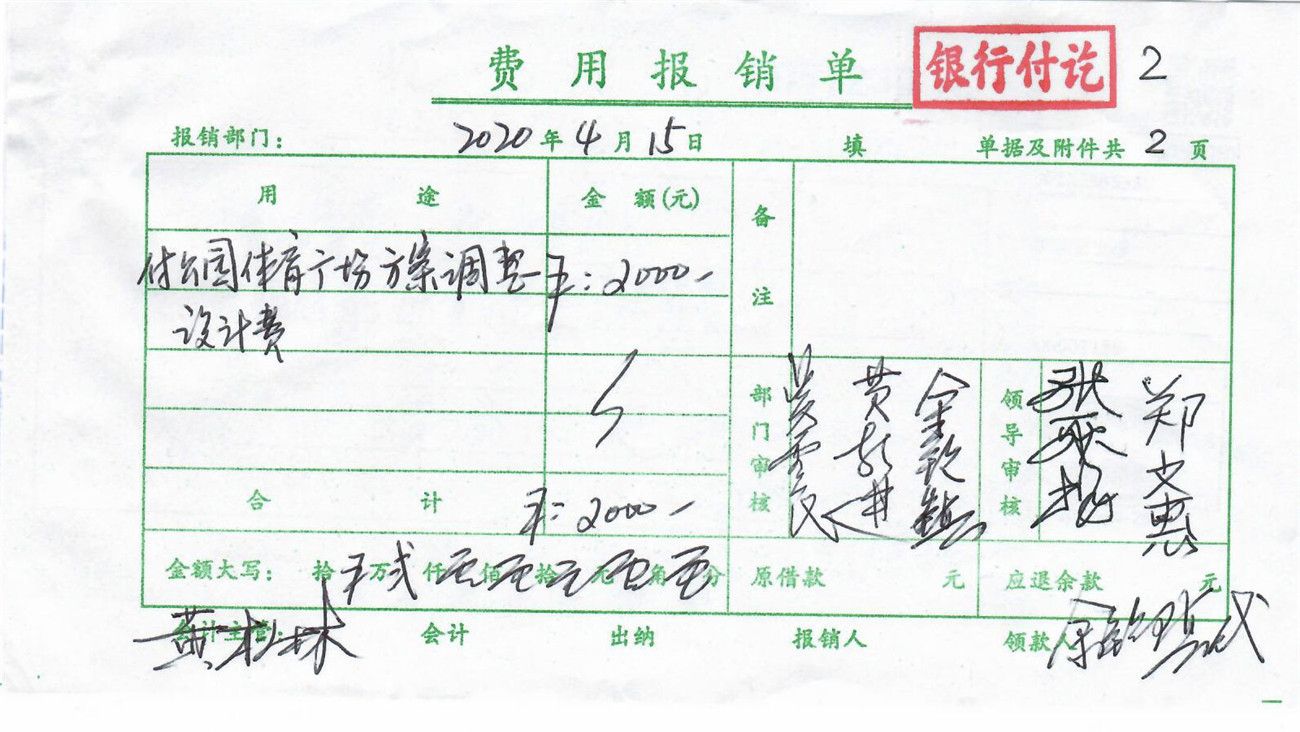 费用报销单 银行付讫 2
报销部门： 2020年4月15日 填 单据及附件共 2 页
用途 金额(元) 备注
付公园体育广场方案调整 ￥:2000-
设计费
部门审核 领导审核 郑文惠
合计 ￥:2000-
金额大写： 拾 ￥万 弍仟 零佰 零拾 零元 零角 零分 原借款 元 应退余款 元
会计主管： 会计 出纳 报销人 领款人